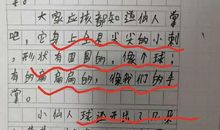 大家应该都知道仙人掌
吧，它身上全是尖尖的小刺
，形状有圆圆的，像个球；
有的扁扁的，像我们的手
掌。
小仙人球还开出了几朵